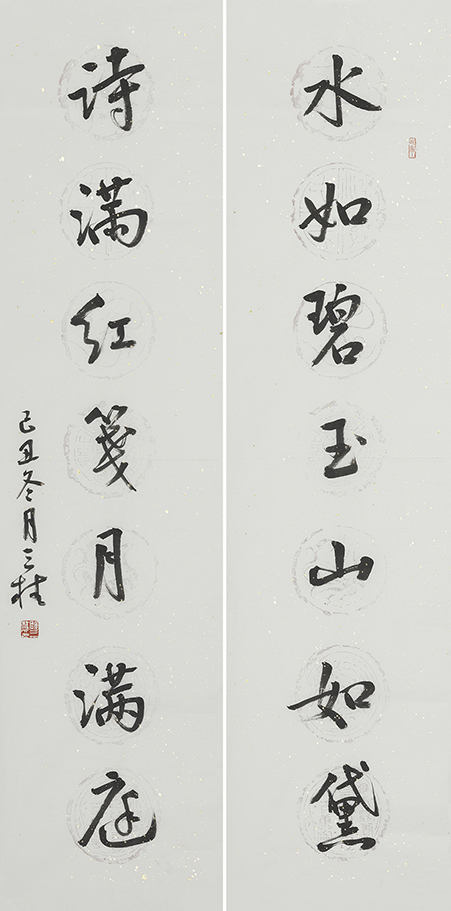 水如碧玉山如黛
诗满红笺月满庭
己丑冬月三桂